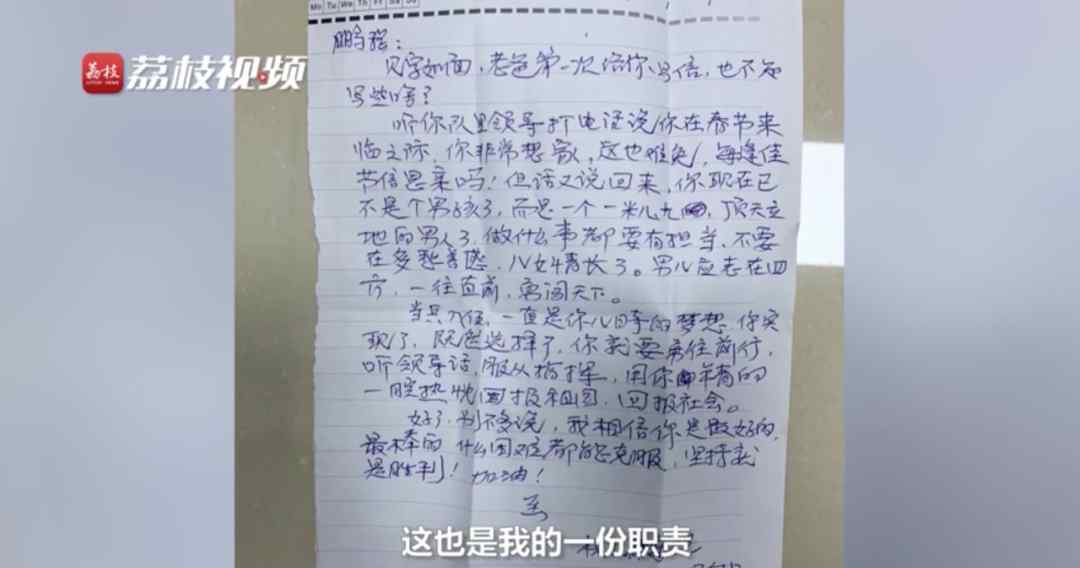 Mo Tu We Th Fr Sa Su
荔枝 荔枝视频
鹏程：
见字如面，老爸第一次给你写信，也不知
写些啥？
听你队里领导打电话说，你在春节来
临之际，你非常想家，这也难免，每逢佳
节倍思亲吗！但话又说回来，你现在已
不是个男孩了，而是一个一米八九，顶天立
地的男人了，做什么事都要有担当，不要
在多愁善感，儿女情长了。男儿应志在四
方，一往直前，勇闯天下。
当兵入伍，一直是你儿时的梦想，你实
现了，既然选择了，你就要勇往前行，
听领导话，服从指挥，用你年青的
一腔热忱回报祖国，回报社会。
好了，别不多说，我相信你是最好的，
最棒的，什么困难都能克服，坚持就
是胜利！加油！
这也是我的一份职责